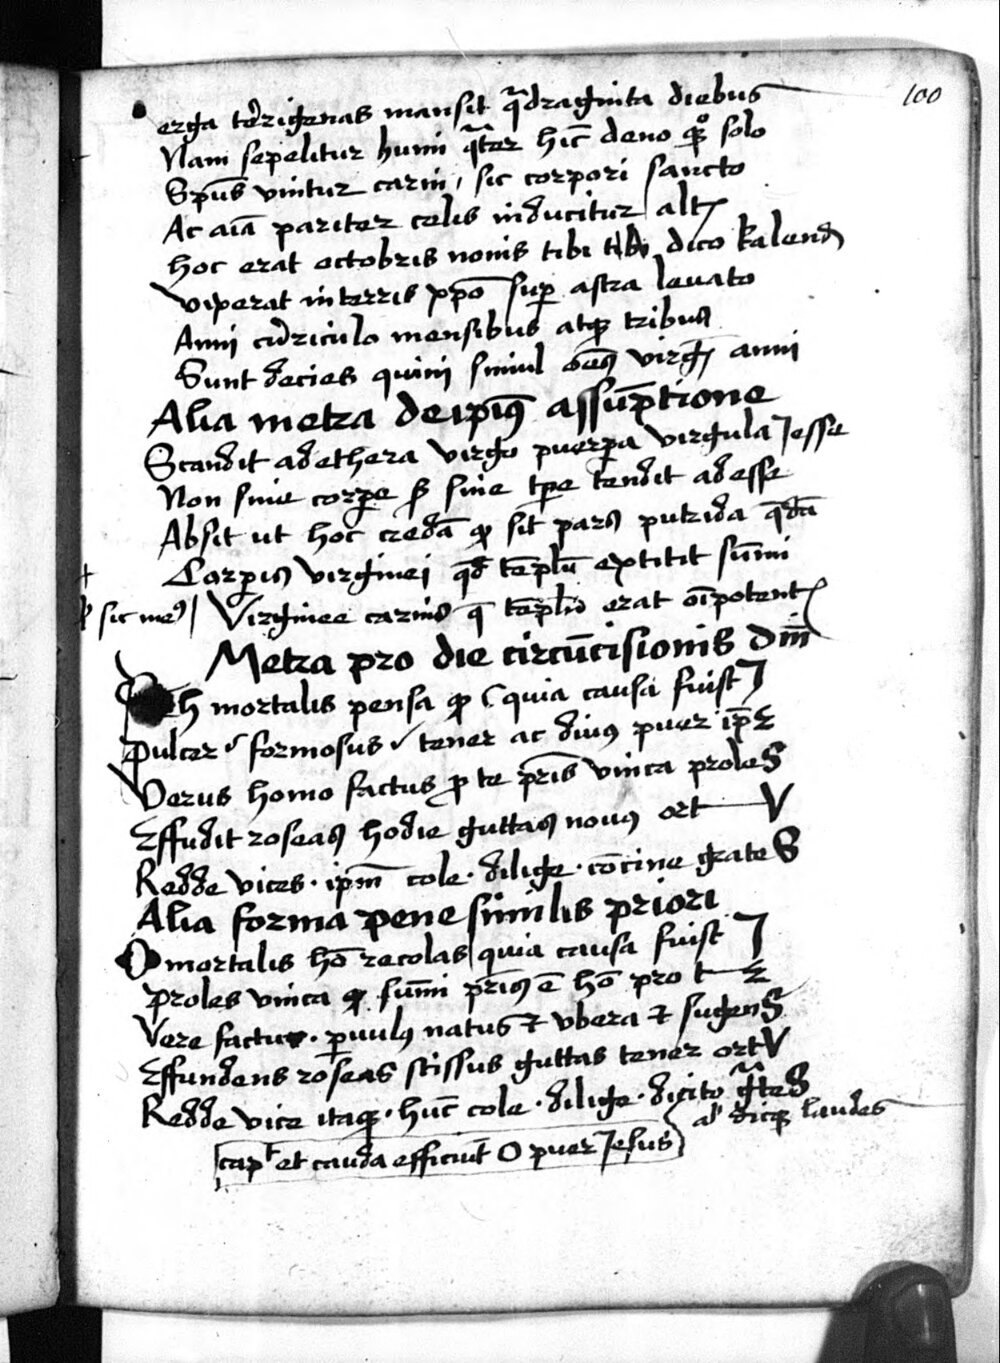 100
erga tērigenas mansit q̄draginta diebus
Nam sepelitur humi q̄ter hīc deno solo
Spūs vnitur carni, sic corpori sancto
Ac aīā pariter celis inducitur alt
hoc erat octobris nonis tibi dico kalend
viperat in terris xp̄o sup astra leuato
Anni cūriculo mensibus atqꝫ tribus
Sunt decies quini simul virg anni
Alia metra de ipiꝰ assūptione
Scandit ad ethera virgo puerꝑa virgula Jesse
Non sine corpe sꝫ sine tp̄e tendit adesse
Absit ut hoc credā ꝙ sit pars putrida q̄dā
Corpis virginei qd̄ tēplū extitit sūmi
sic meꝰ Virginee carnis q̄ tēplū erat oīpotent
Metra pro die circūcisionis dm̄
h mortalis pensa ꝙ quia causa fuist J
Pulcer formosus tener ac diuꝰ puer ip̄ E
Verus homo factus ꝓ te pr̄is vnica prole S
Effudit roseas hodie guttas nouꝰ ort V
Redde vices · ip̄m cole · dilige · cōcine grate S
Alia forma pene similis priori
O mortalis hō recolas quia causa fuist J
proles vnica ꝙ sūmi ē hō pro t E
Vere factus · ꝑuulꝰ natus et vbera et sugen S
Effundens roseas scissus guttas tener ort V
Redde vice itaqꝫ · hūc cole · dilige · dicito g̃te S
al' dicqꝫ laudes
capᵗ et cauda efficiūt O puer Jesus